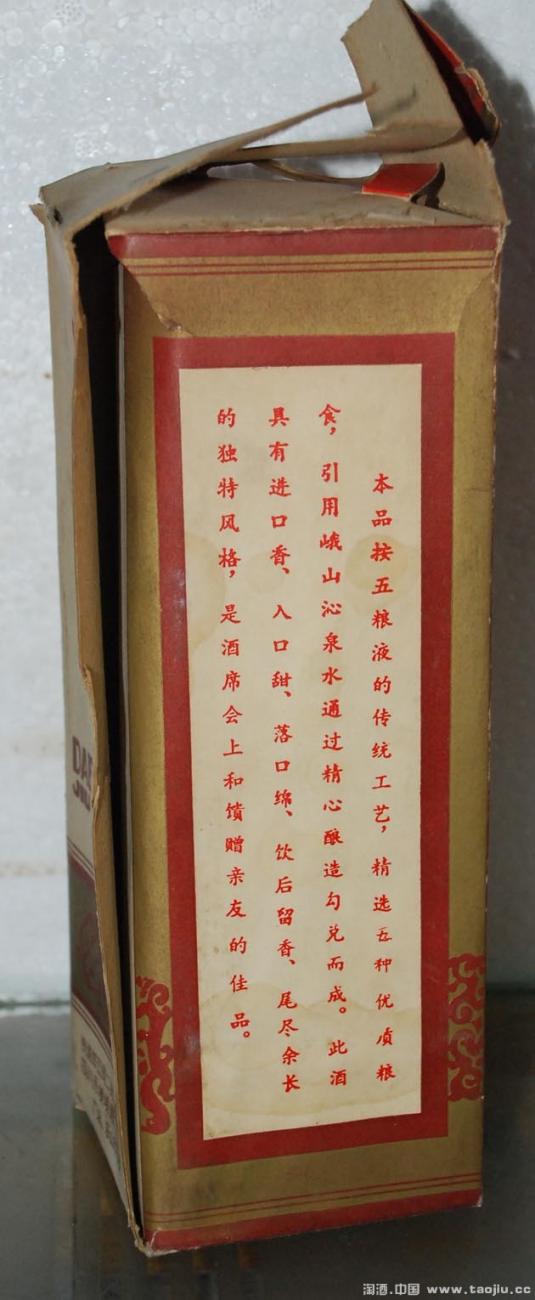 本品按五粮液的传统工艺，精选五种优质粮
食，引用峨山沁泉水通过精心酿造勾兑而成。此酒
具有进口香、入口甜、落口绵、饮后留香、尾尽余长
的独特风格，是酒席会上和馈赠亲友的佳品。
淘酒.中国 www.taojiu.cc